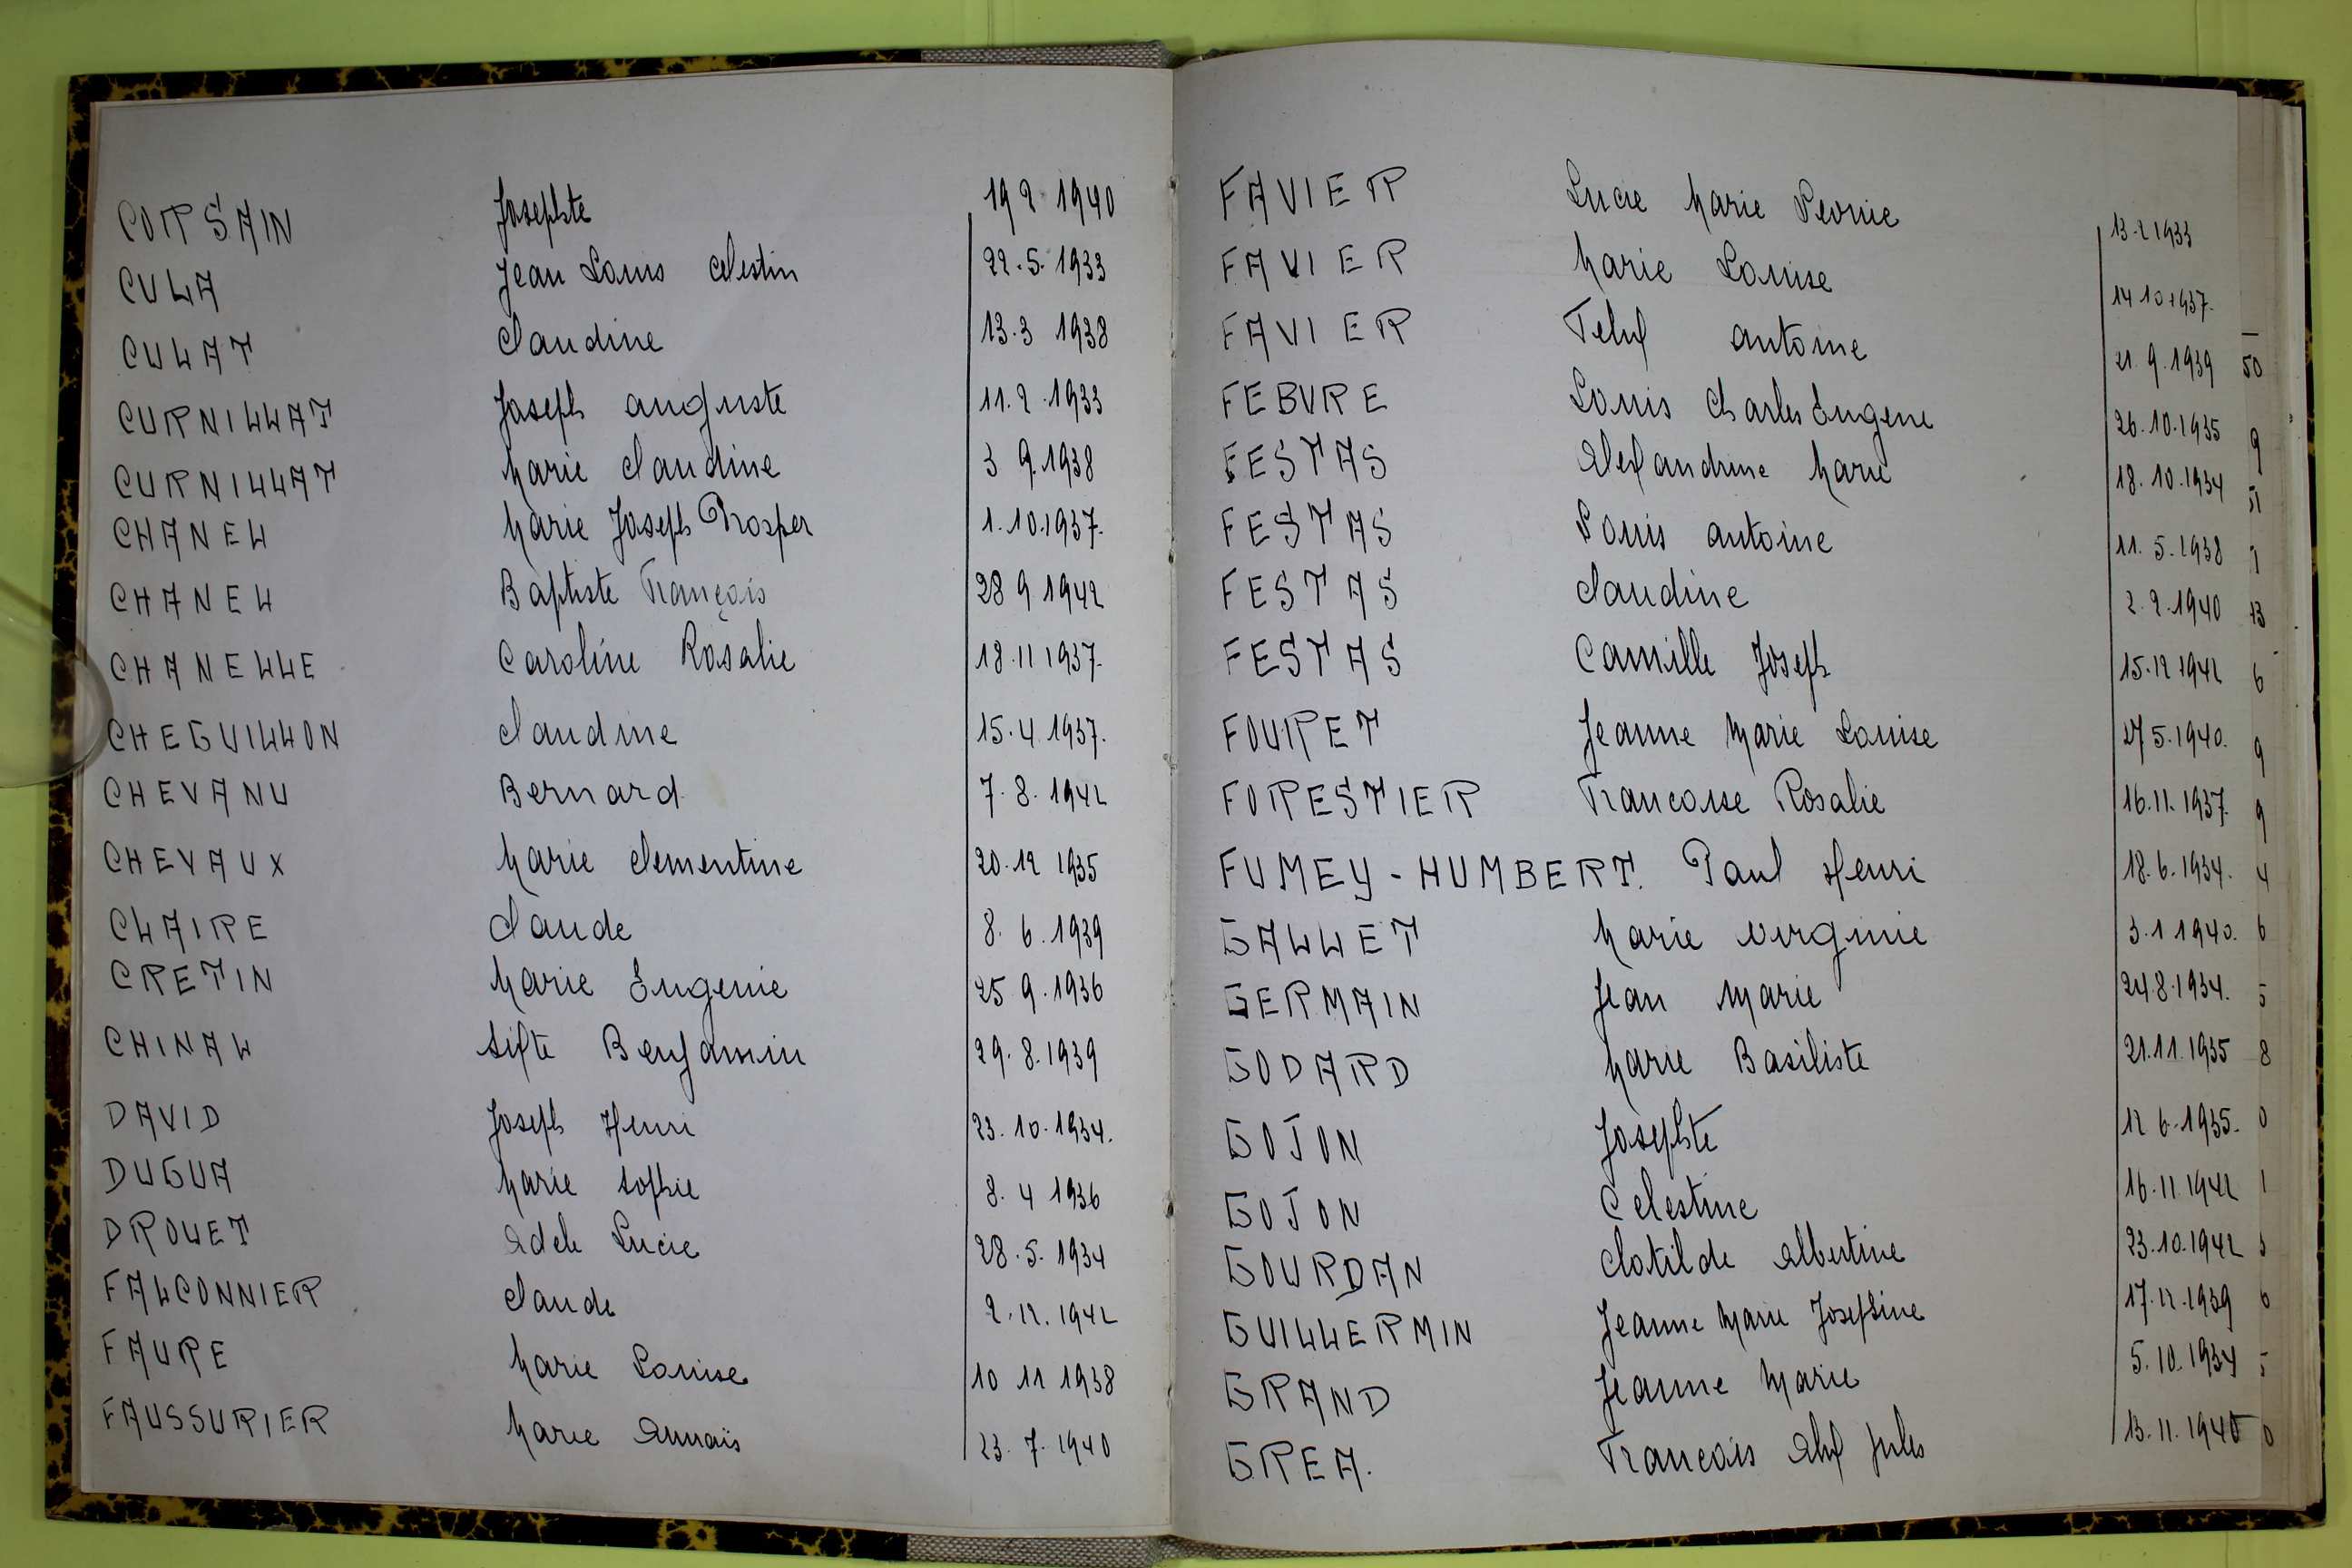 CORSAIN Josephte 19 2 1940
CULA Jean Louis Celestin 22.5.1933
CULAT Claudine 13.3 1938
CURNILLAT Joseph auguste 11.2.1933
CURNILLAT Marie Claudine 3 9.1938
CHANEL Marie Joseph Prosper 1.10.1937.
CHANEL Baptiste François 28 9 1942
CHANELLE Caroline Rosalie 18.11 1937.
CHEGUILLON Claudine 15.4.1937.
CHEVANU Bernard 7.8.1942
CHEVAUX Marie Clementine 20.12 1935
CLAIRE Claude 8.6.1939
CRETIN Marie Eugenie 25 9.1936
CHINAL Sixte Benjamin 29.8.1939
DAVID Joseph Henri 23.10.1934.
DUGUA Marie Sophie 8.4 1936
DROUET Adele Lucie 28.5.1934
FALCONNIER Claude 2.12.1942
FAURE Marie Louise 10 11 1938
FAUSSURIER Marie Annais 23.7.1940
FAVIER Lucie Marie Leonie 13.2 1933
FAVIER Marie Louise 14 10 1937.
FAVIER antoine 21.9.1939
FEBVRE Louis Charles Eugene 26.10.1935
FESTAS Alexandrine Marie 18.10.1934
FESTAS Louis antoine 11.5.1938
FESTAS Claudine 2.2.1940
FESTAS Camille Joseph 15.12 1942
FOURET Jeanne Marie Louise 27 5.1940.
FORESTIER Francoise Rosalie 16.11.1937.
FUMEY-HUMBERT. Paul Henri 18.6.1934.
GALLET Marie Virginie 3.1 1940.
GERMAIN Jean Marie 24.8.1934.
GODARD Marie Basiliste 21.11.1935
GOJON Josephte 12 6.1935.
GOJON Celestine 16.11.1942
GOURDAN Clotilde Albertine 23.10.1942
GUILLERMIN Jeanne Marie Josephine 17.12.1939
GRAND Jeanne Marie 5.10.1934
GREA. Francois Jules 13.11.1940
50
9
51
1
13
6
9
9
4
6
5
8
0
1
3
6
5
0